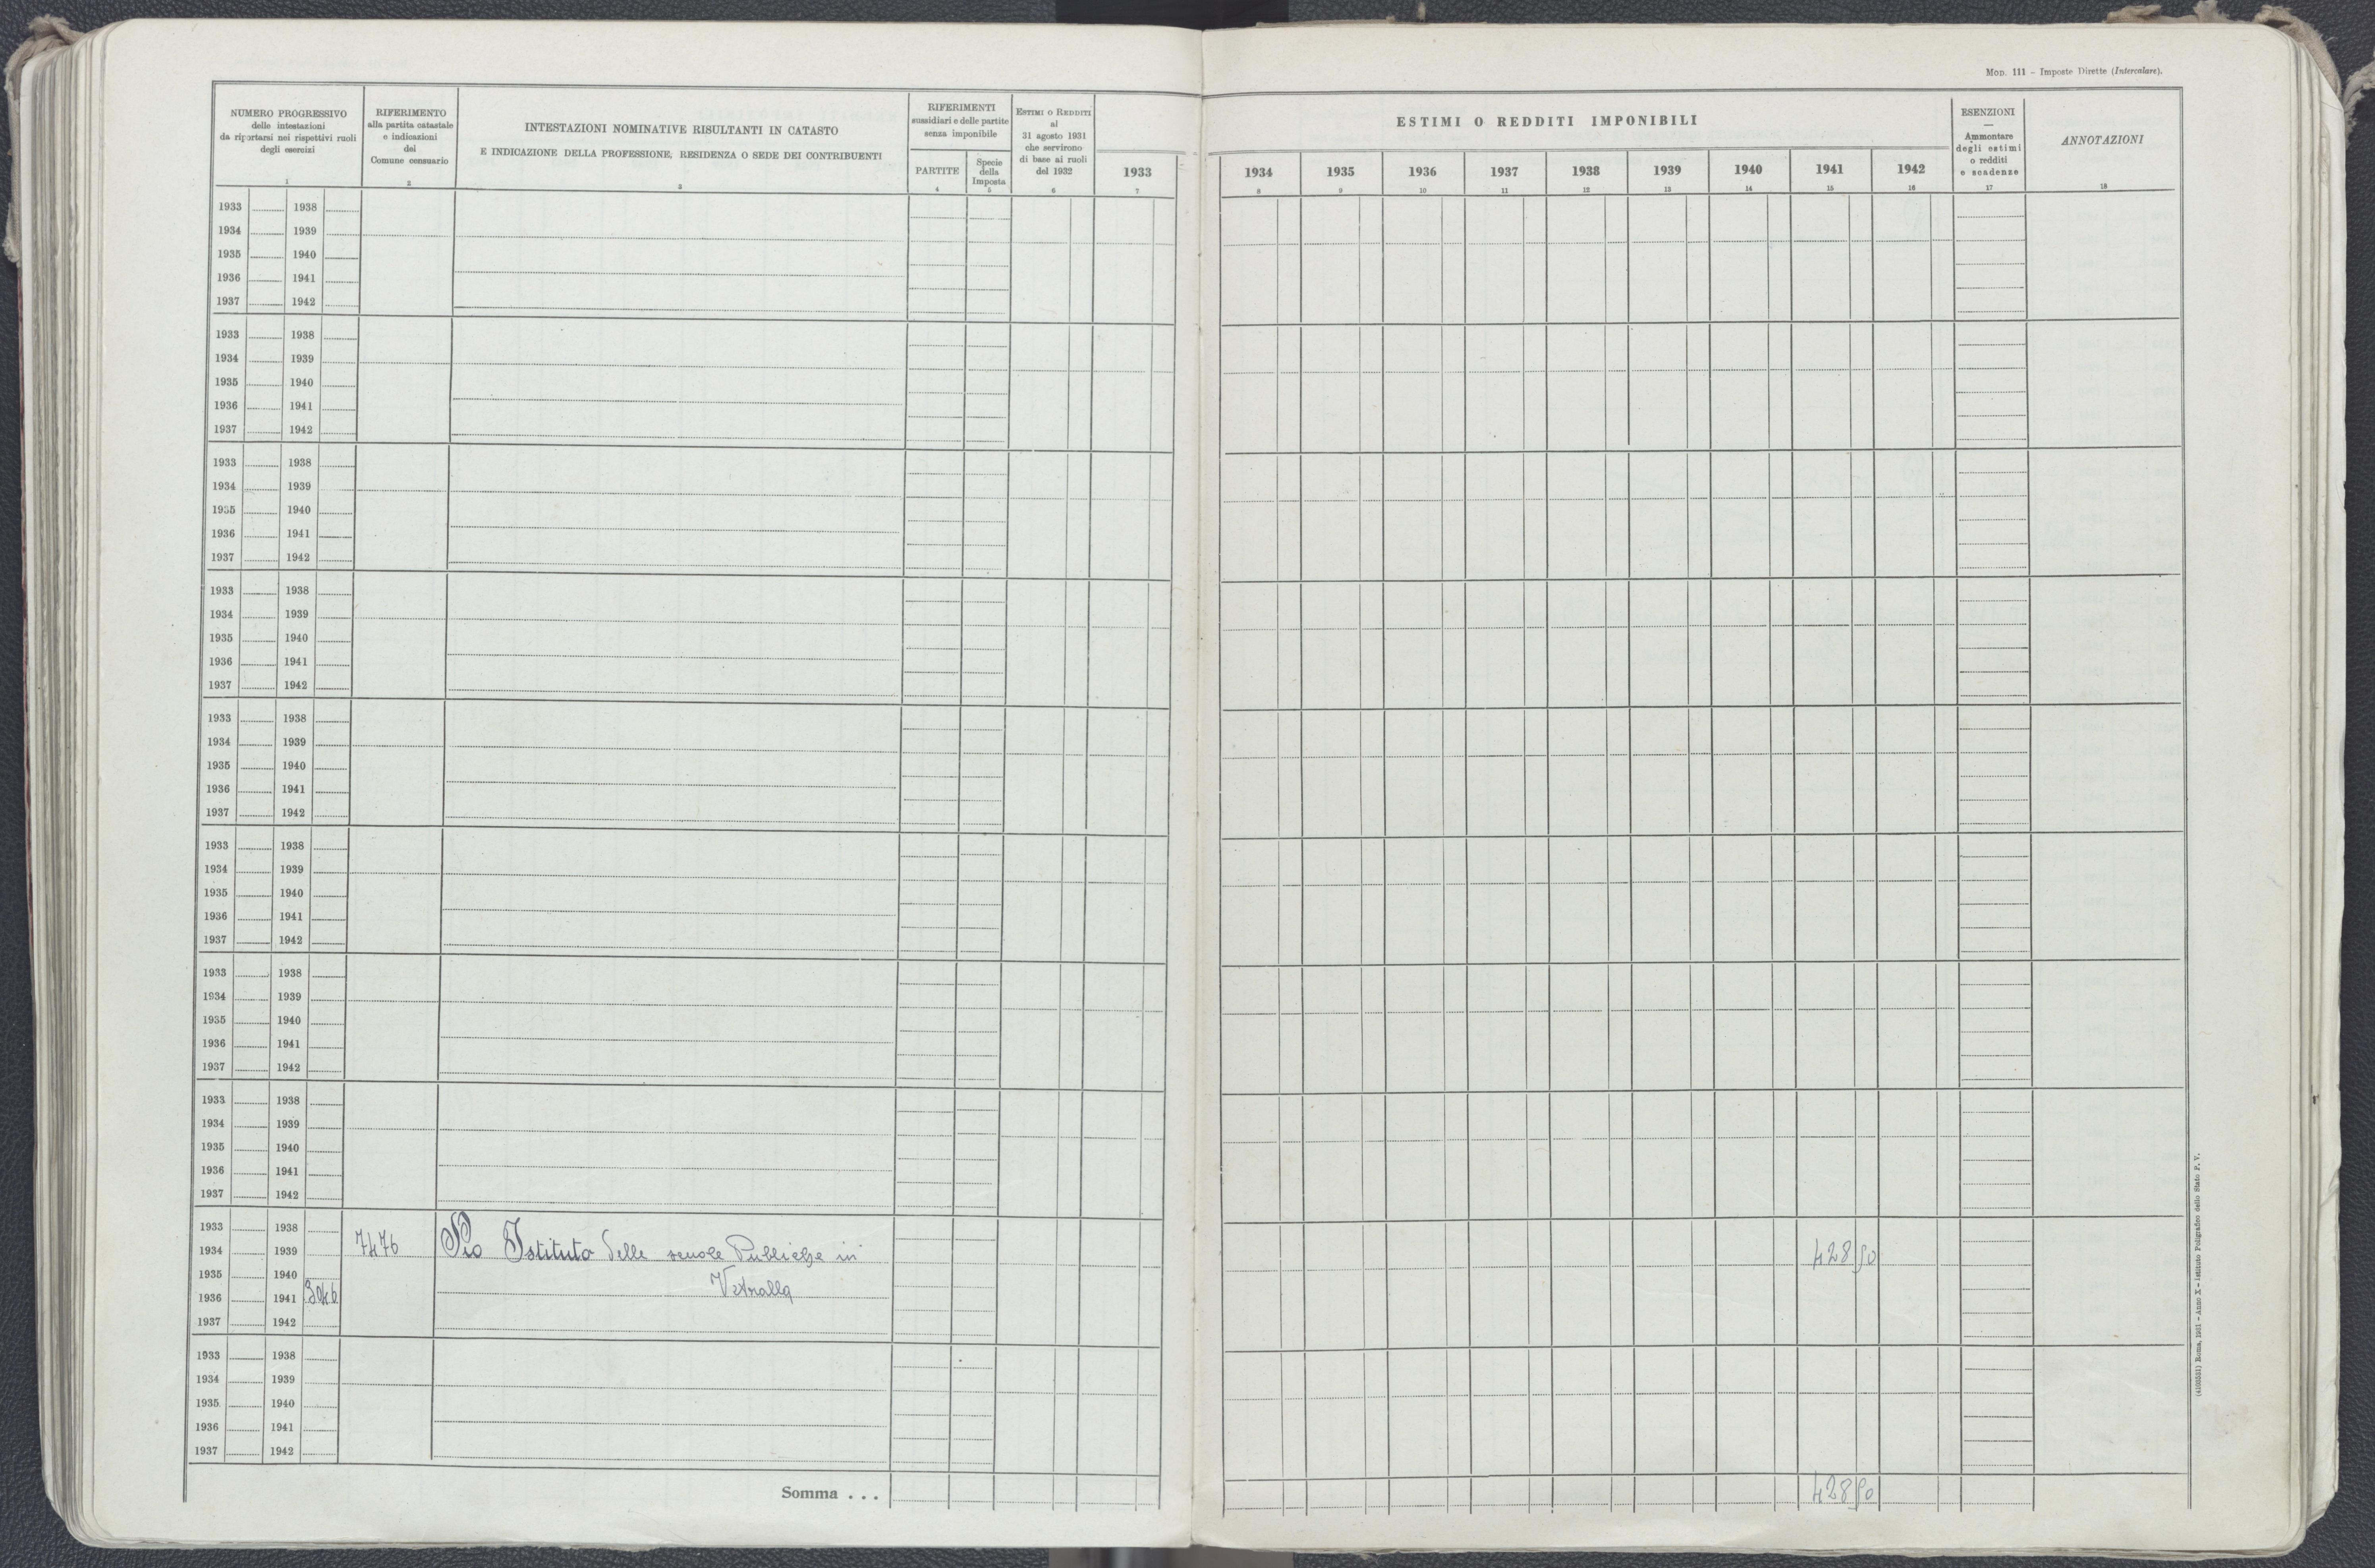 Mod. 111 - Imposte Dirette (Intercalare).
NUMERO PROGRESSIVO
delle intestazioni
da riportarsi nei rispettivi ruoli
degli esercizi
1
RIFERIMENTO
alla partita catastale
e indicazioni
del
Comune censuario
2
INTESTAZIONI NOMINATIVE RISULTANTI IN CATASTO
E INDICAZIONE DELLA PROFESSIONE, RESIDENZA O SEDE DEI CONTRIBUENTI
3
RIFERIMENTI
sussidiari e delle partite
senza imponibile
PARTITE
4
Specie
della
Imposta
5
Estimi o Redditi
al
31 agosto 1931
che servirono
di base ai ruoli
del 1932
6
ESTIMI O REDDITI IMPONIBILI
1933 1934 1935 1936 1937 1938 1939 1940 1941 1942
7 8 9 10 11 12 13 14 15 16
ESENZIONI
—
Ammontare
degli estimi
o redditi
e scadenze
17
ANNOTAZIONI
18
1933 1938
1934 1939
1935 1940
1936 1941
1937 1942
1933 1938
1934 1939
1935 1940
1936 1941
1937 1942
1933 1938
1934 1939
1935 1940
1936 1941
1937 1942
1933 1938
1934 1939
1935 1940
1936 1941
1937 1942
1933 1938
1934 1939
1935 1940
1936 1941
1937 1942
1933 1938
1934 1939
1935 1940
1936 1941
1937 1942
1933 1938
1934 1939
1935 1940
1936 1941
1937 1942
1933 1938
1934 1939
1935 1940
1936 1941
1937 1942
1933 1938
1934 1939 7476 Pio Istituto delle scuole Pubbliche in 428 90
1935 1940 Vetralla
1936 1941 3046
1937 1942
1933 1938
1934 1939
1935 1940
1936 1941
1937 1942
Somma . . . 428 90
(4100551) Roma, 1931 - Anno X - Istituto Poligrafico dello Stato P. V.